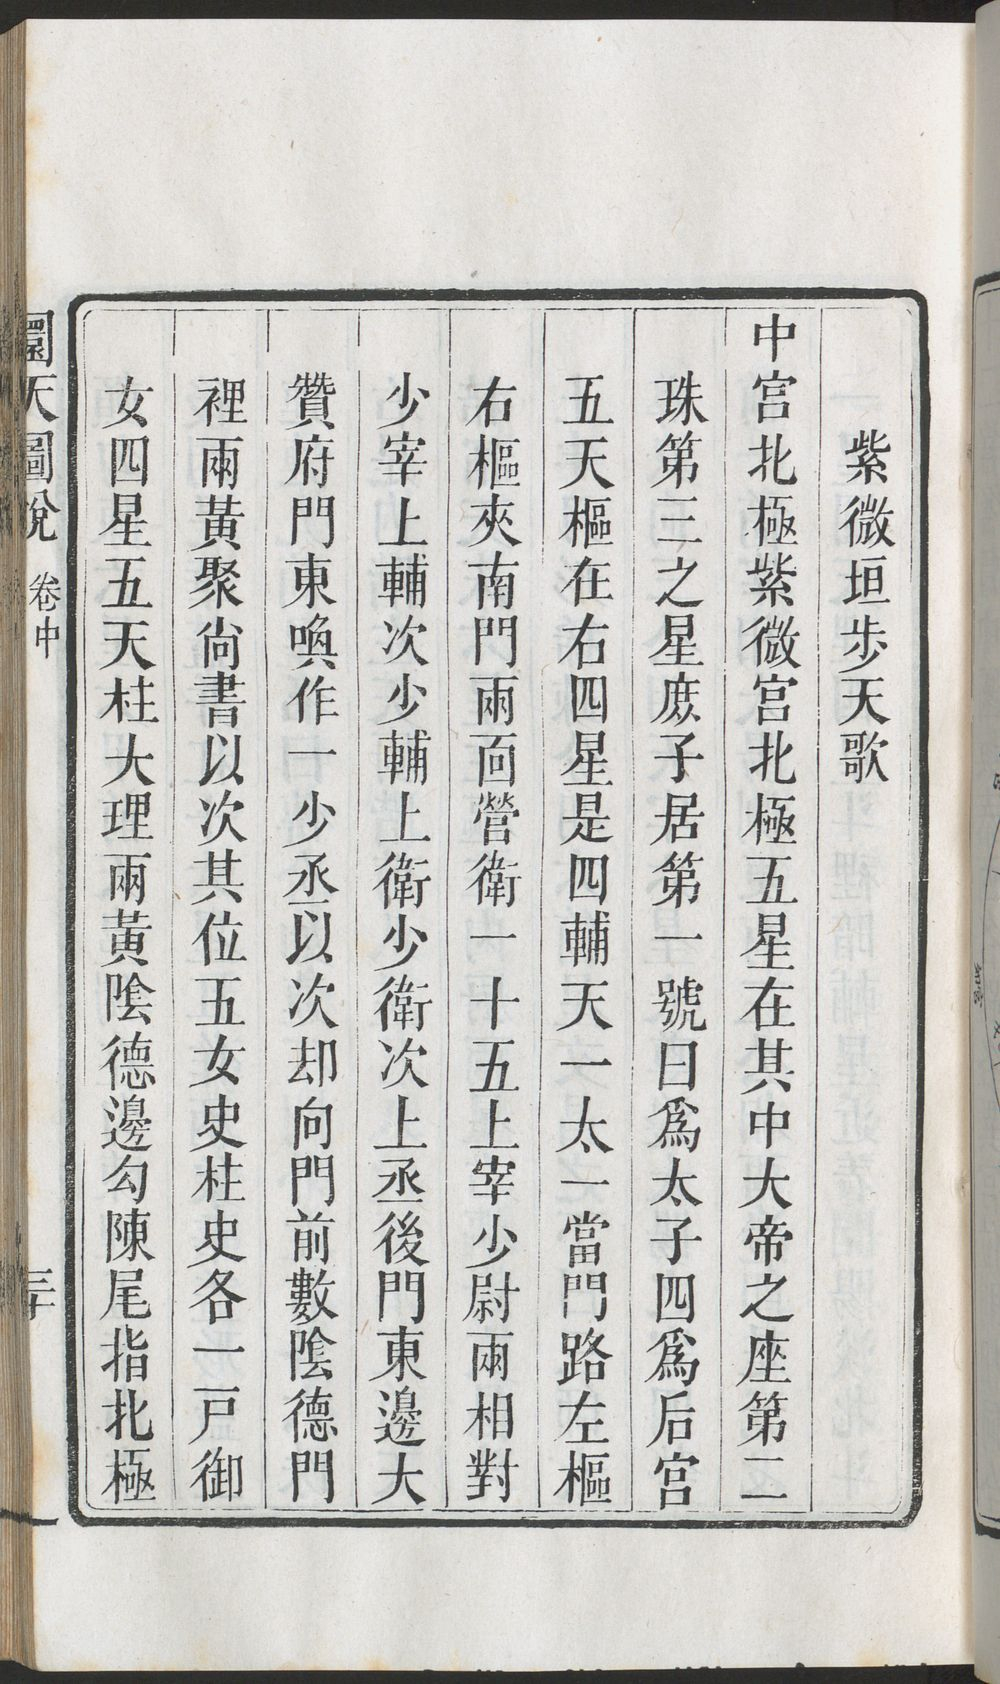 紫微垣步天歌
中宮北極紫微宮北極五星在其中大帝之座第二
珠第三之星庶子居第一號曰爲太子四爲后宮
五天樞在右四星是四輔天一太一當門路左樞
右樞夾南門兩面營衛一十五上宰少尉兩相對
少宰上輔次少輔上衛少衛次上丞後門東邊大
贊府門東喚作一少丞以次却向門前數陰德門
裡兩黃聚尙書以次其位五女史柱史各一戶御
女四星五天柱大理兩黃陰德邊勾陳尾指北極
圜天圖說
卷中
三十